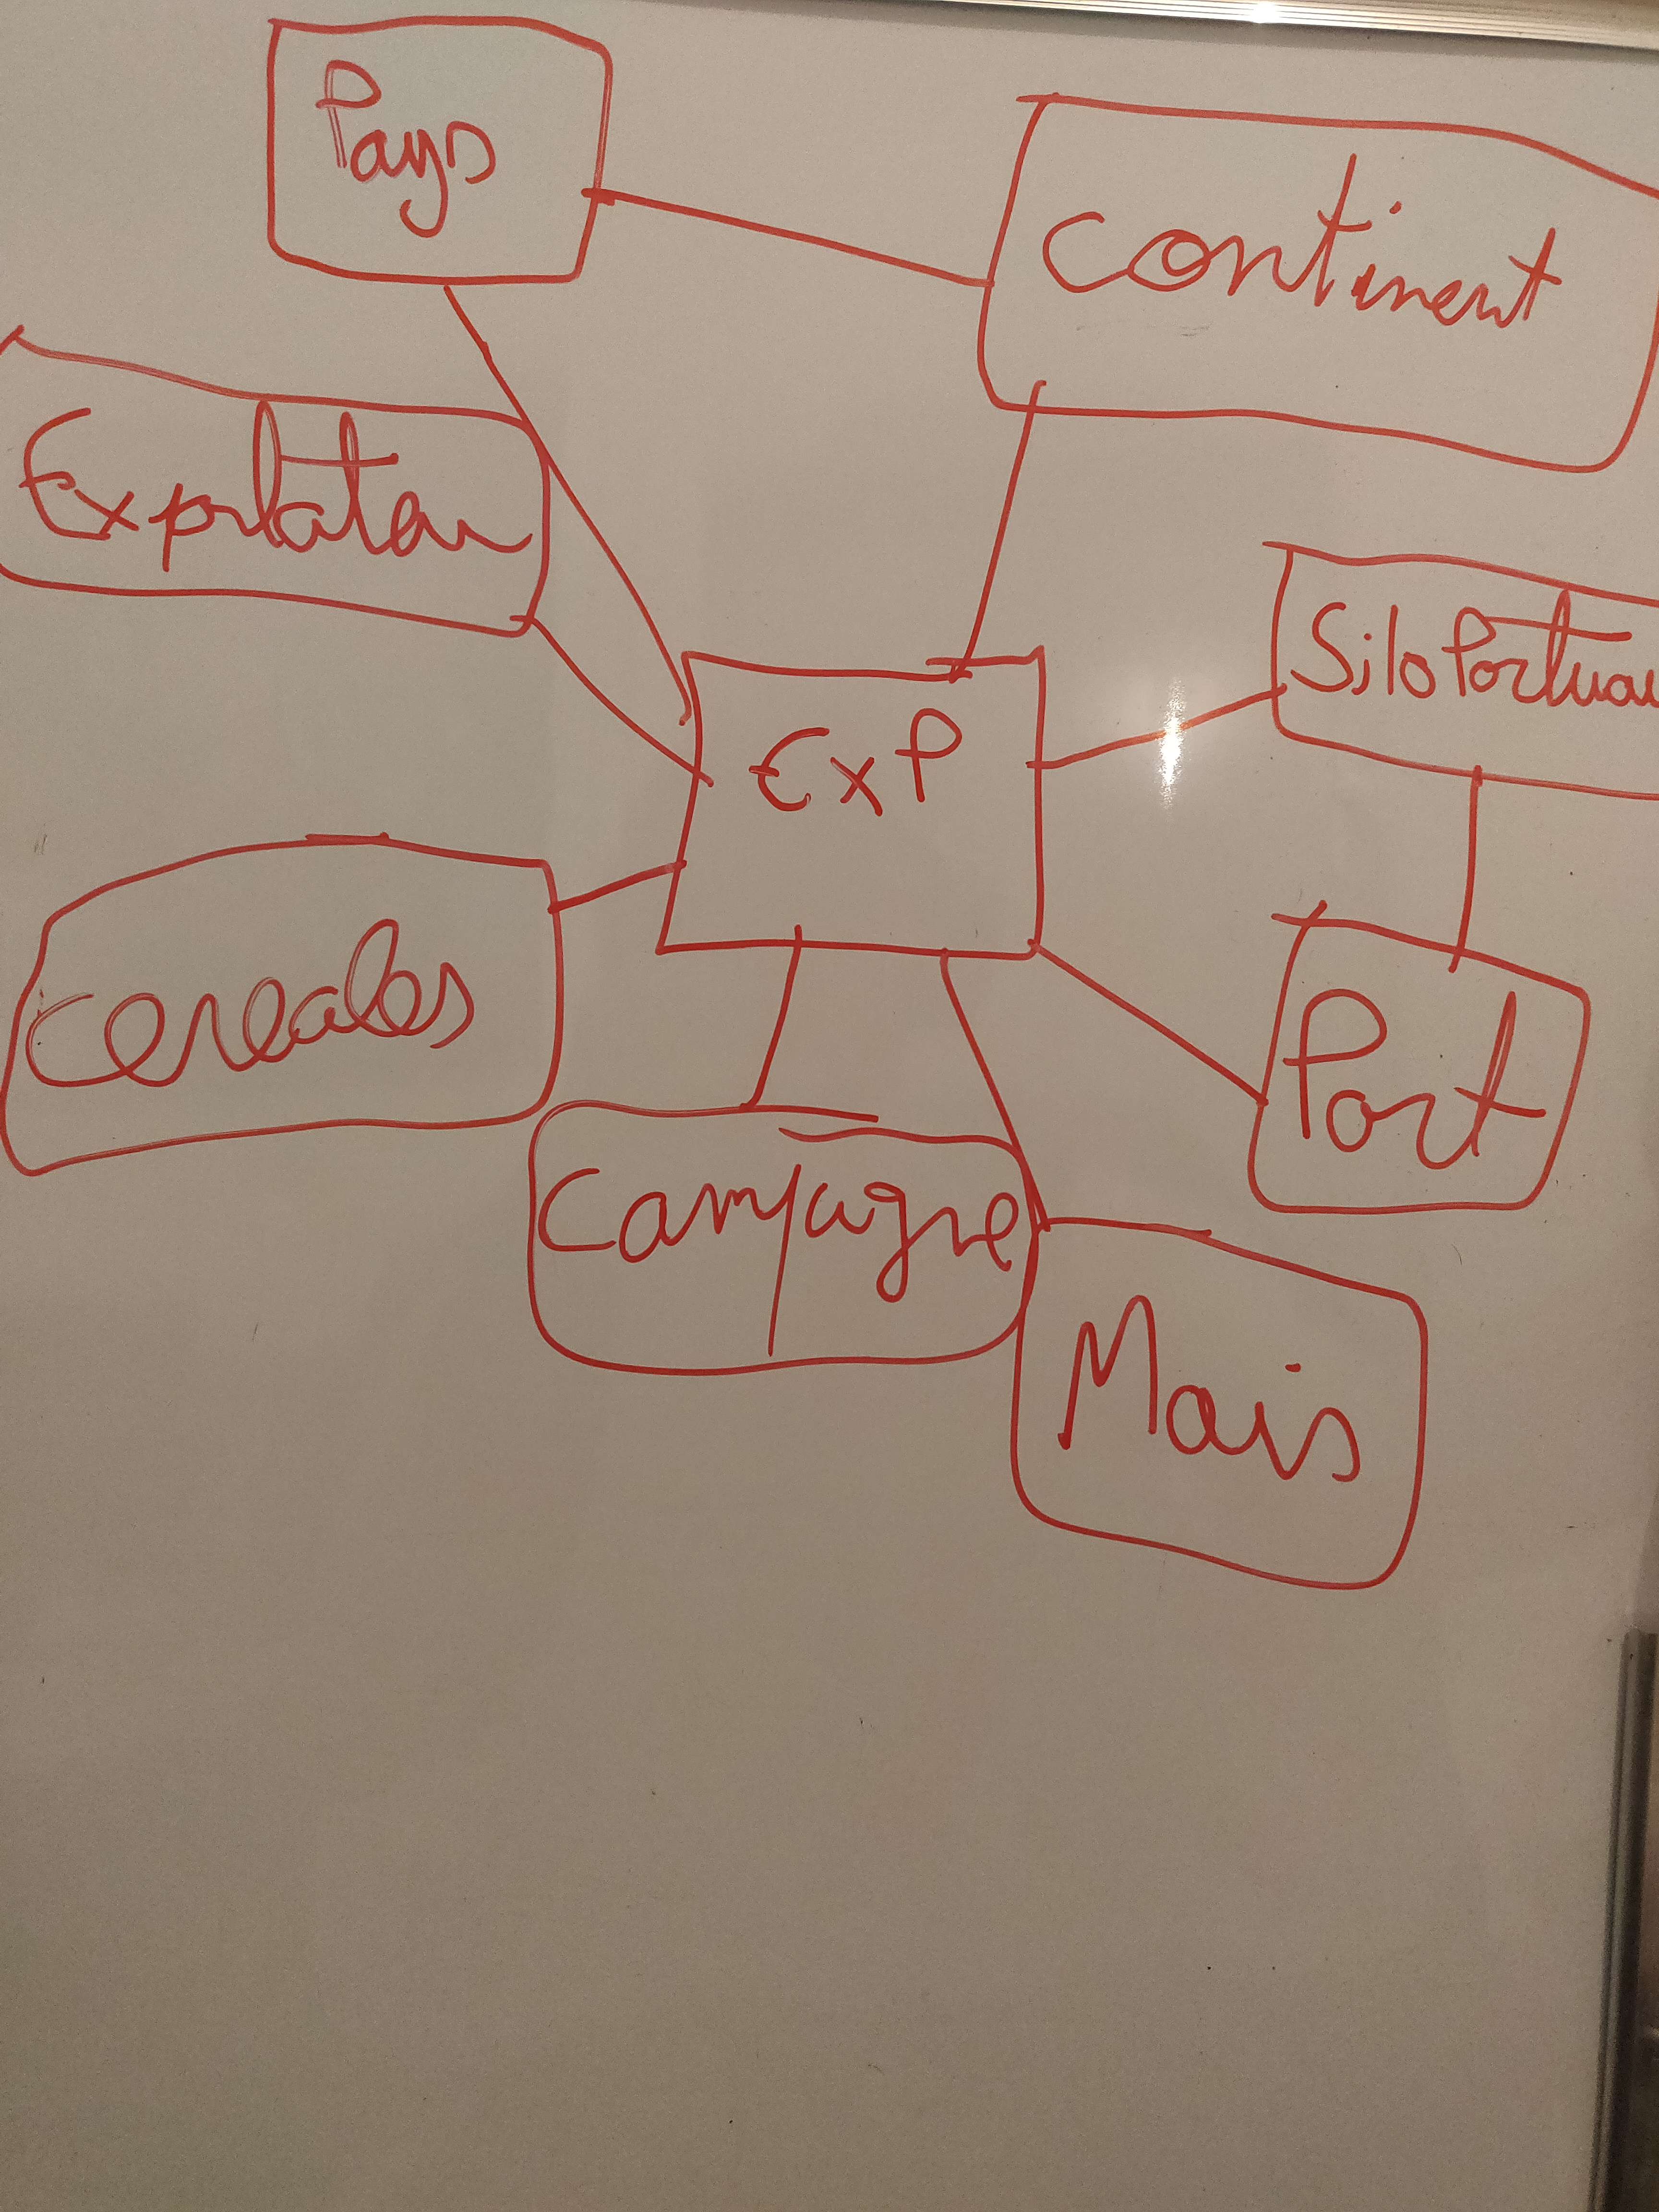 Pays
Continent
Silo Portuai
ExP
Cereales
Port
Campagne
Mais